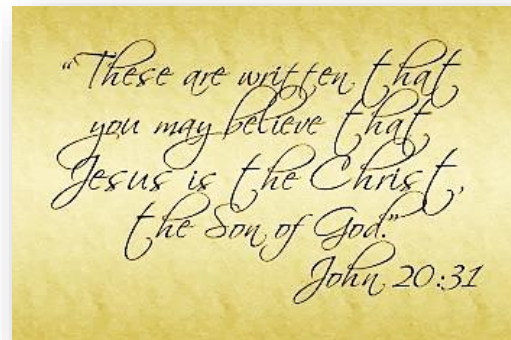 “These are written that
you may believe that
Jesus is the Christ,
the Son of God.”
John 20:31